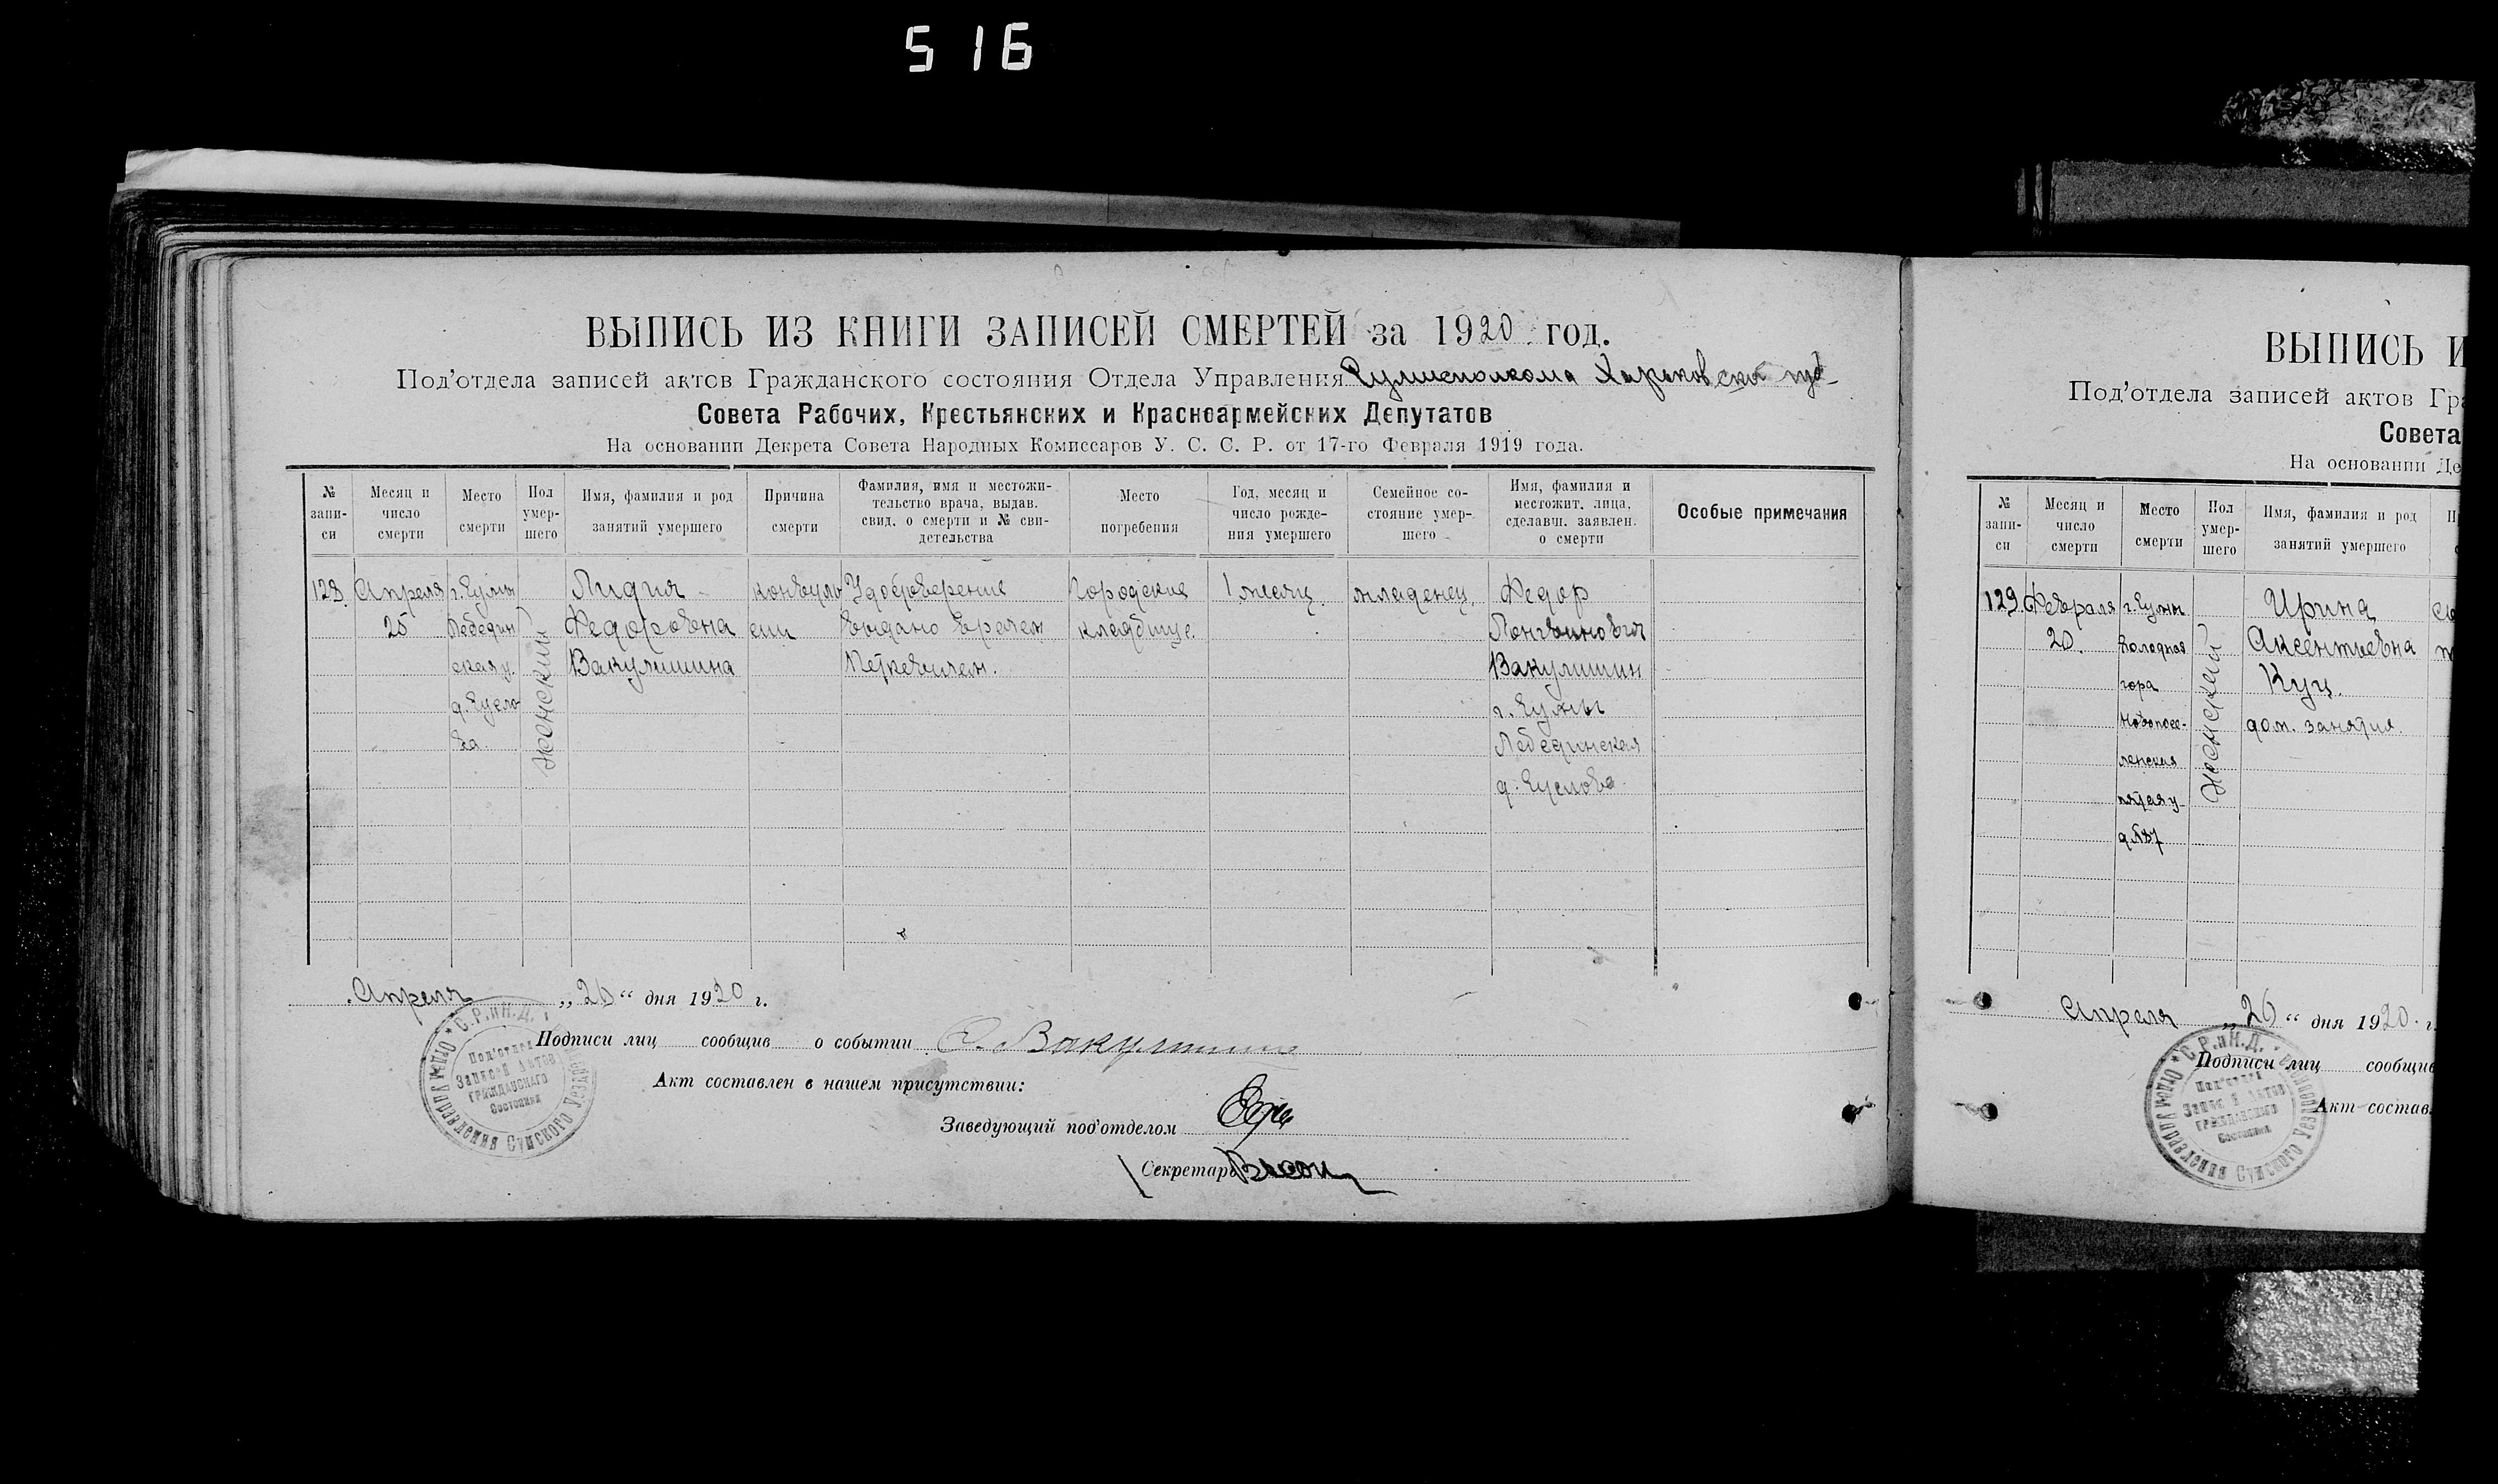 516
ВЫПИСЬ ИЗ КНИГИ ЗАПИСЕЙ СМЕРТЕЙ за 1920 год.
Под'отдела записей актов Гражданского состояния Отдела Управления Сумисполкома Харьковской губ-
Совета Рабочих, Крестьянских и Красноармейских Депутатов
На основании Декрета Совета Народных Комиссаров У. С. С. Р. от 17-го Февраля 1919 года.
№ запи-
си
Месяц и
число
смерти
Место
смерти
Пол
умер-
шего
Имя, фамилия и род
занятий умершего
Причина
смерти
Фамилия, имя и местожи-
тельство врача, выдав.
свид. о смерти и № сви-
детельства
Место
погребения
Год, месяц и
число рожде-
ния умершего
Семейное со-
стояние умер-
шего
Имя, фамилия и
местожит. лица,
сделавш. заявлен.
о смерти
Особые примечания
128.
Апреля
25
г. Сумы
Лебедин
ская у.
д. Сусло
ва.
женский
Лидия
Федоровна
Вакулишина
конвуль
сии
Удостоверение
выдано врачем
Петкевичем.
Городское
кладбище.
1 месяц.
младенец.
Федор
Лонгвинович
Вакулишин
г. Сумы
Лебединская
д. Суслова.
Апреля „26“ дня 1920 г.
Подписи лиц сообщив о событии Вакулишин
Акт составлен в нашем присутствии:
Заведующий под'отделом
Секретарь
С.Р.и К.Д.
Отдел Управления Сумского Уездного
Под'отдел
Записей Актов
Гражданскаго
Состояния
ВЫПИСЬ И
Под'отдела записей актов Гра
Совета
На основании Де
№
запи-
си
Месяц и
число
смерти
Место
смерти
Пол
умер-
шего
Имя, фамилия и род
занятий умершего
129.
Февраля
20.
г. Сумы
Холодная
гора
Новопосе-
ленская
пятая у.
д. №87
женский
Ирина
Аксентьевна
Куц.
дом. занятия.
Апреля „26“ дня 1920 г.
Подписи лиц сообщив
Акт состав
С.Р.и К.Д.
Отдел Управления Сумского Уездного
Под'отдел
Записей Актов
Гражданскаго
Состояния